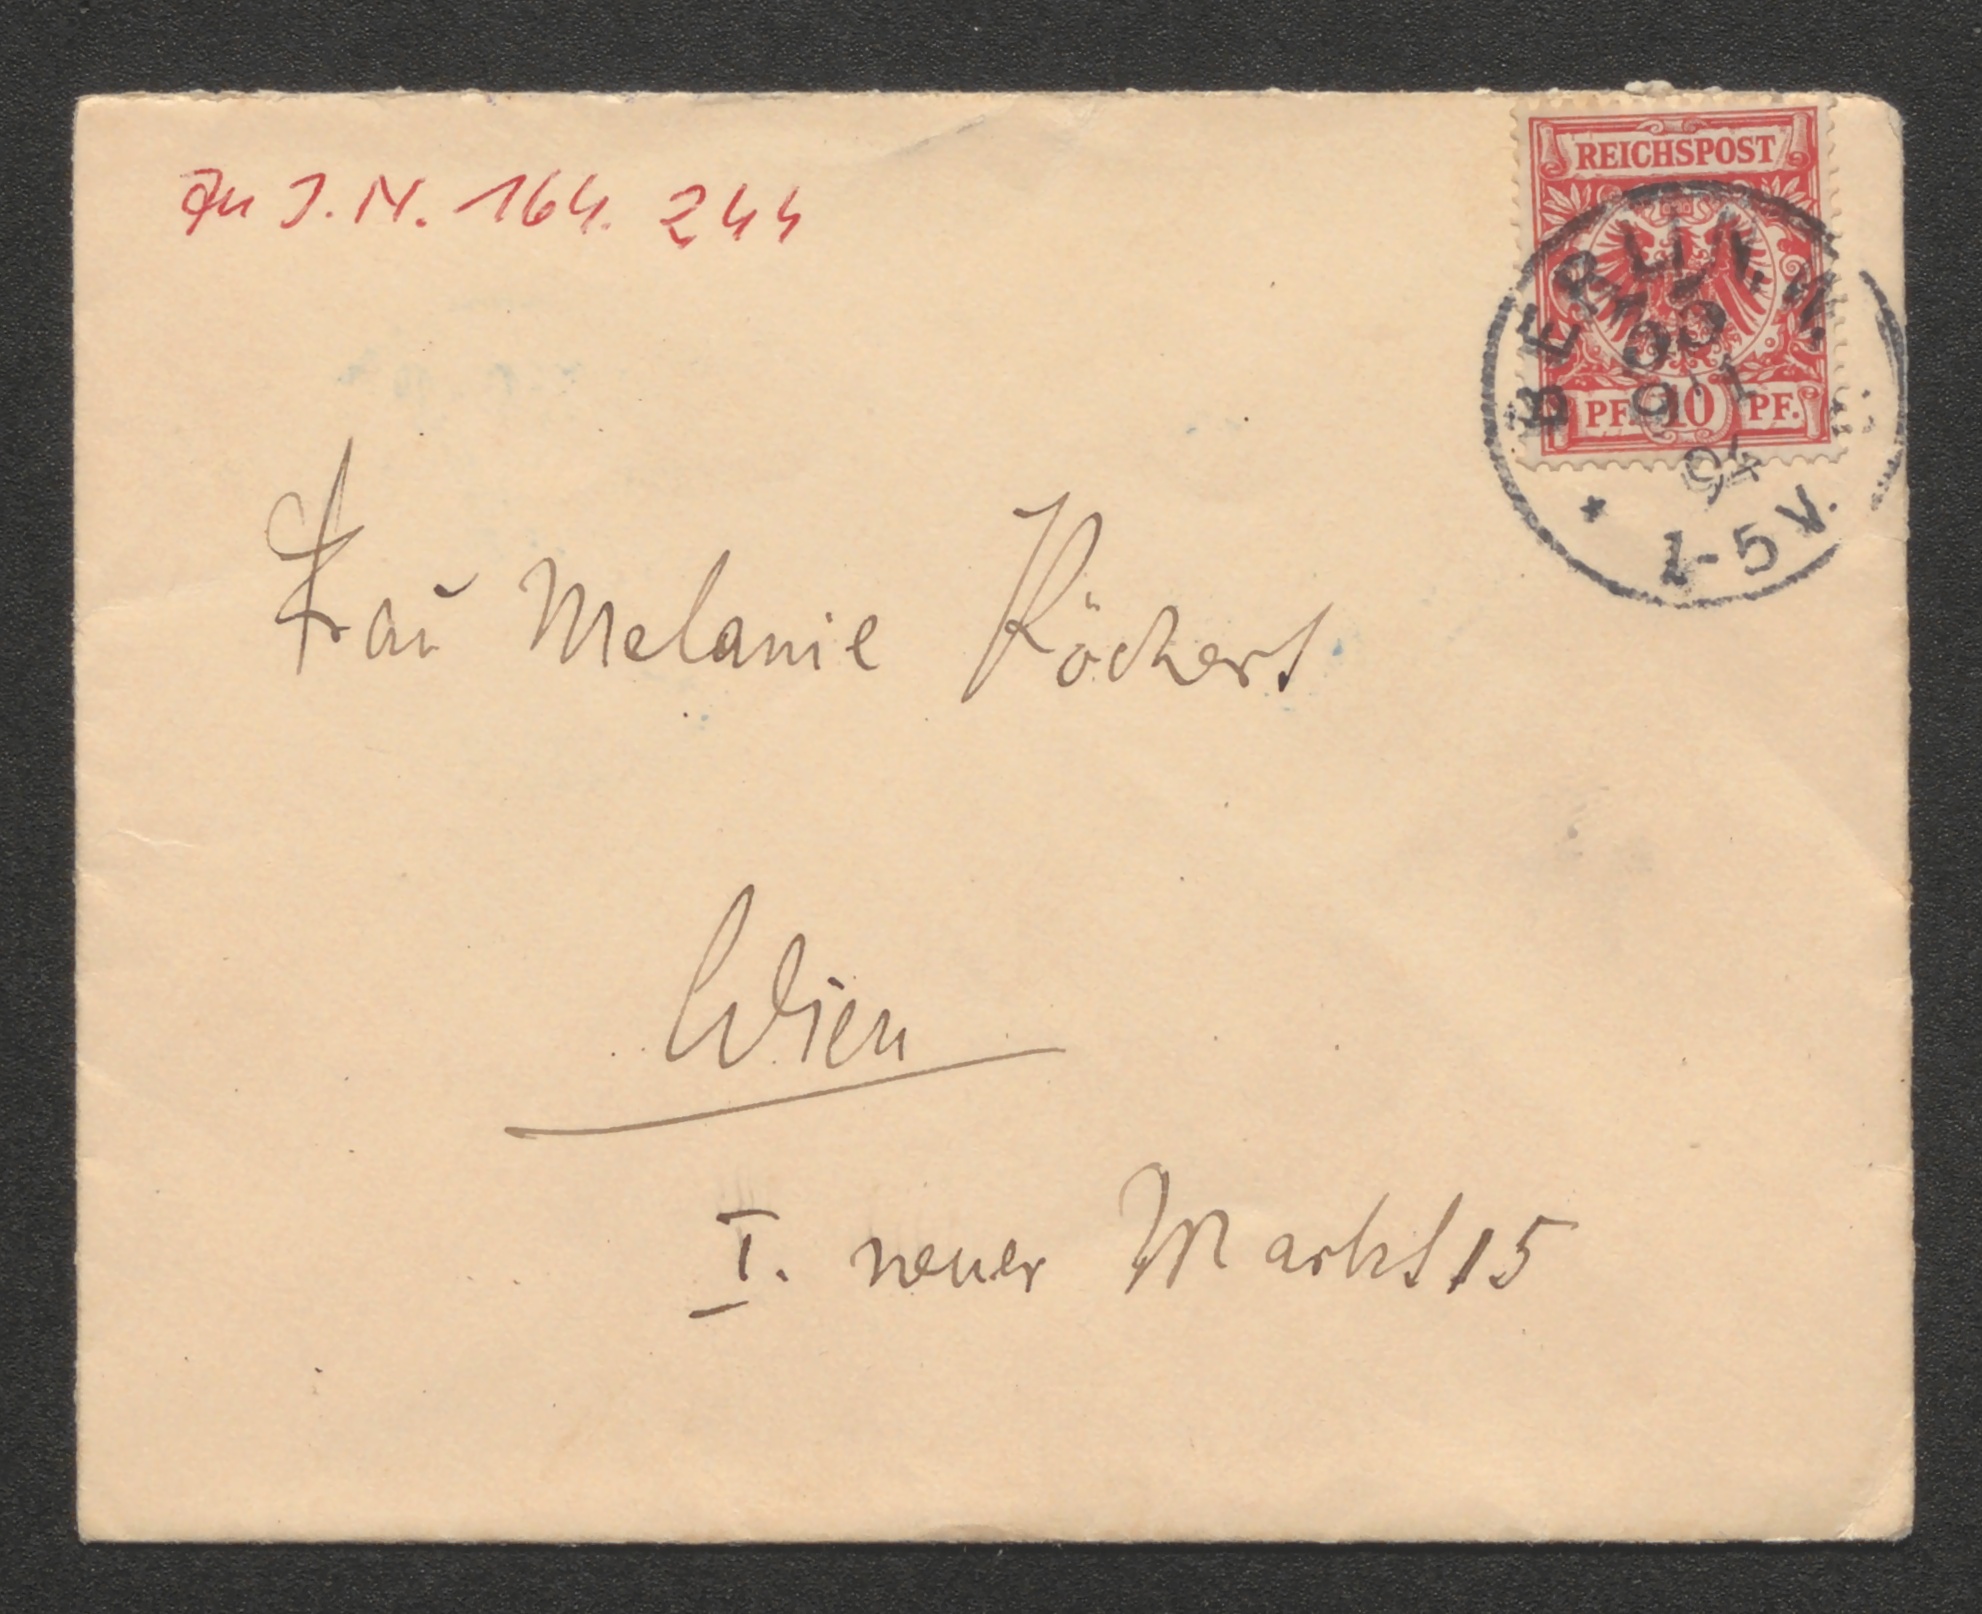 Zu J. N. 164. 244
REICHSPOST
PF. 10 PF.
BERLIN. W.
9 1
94
1-5 V.
Frau Melanie Köchert
Wien
I. neuer Markt 15